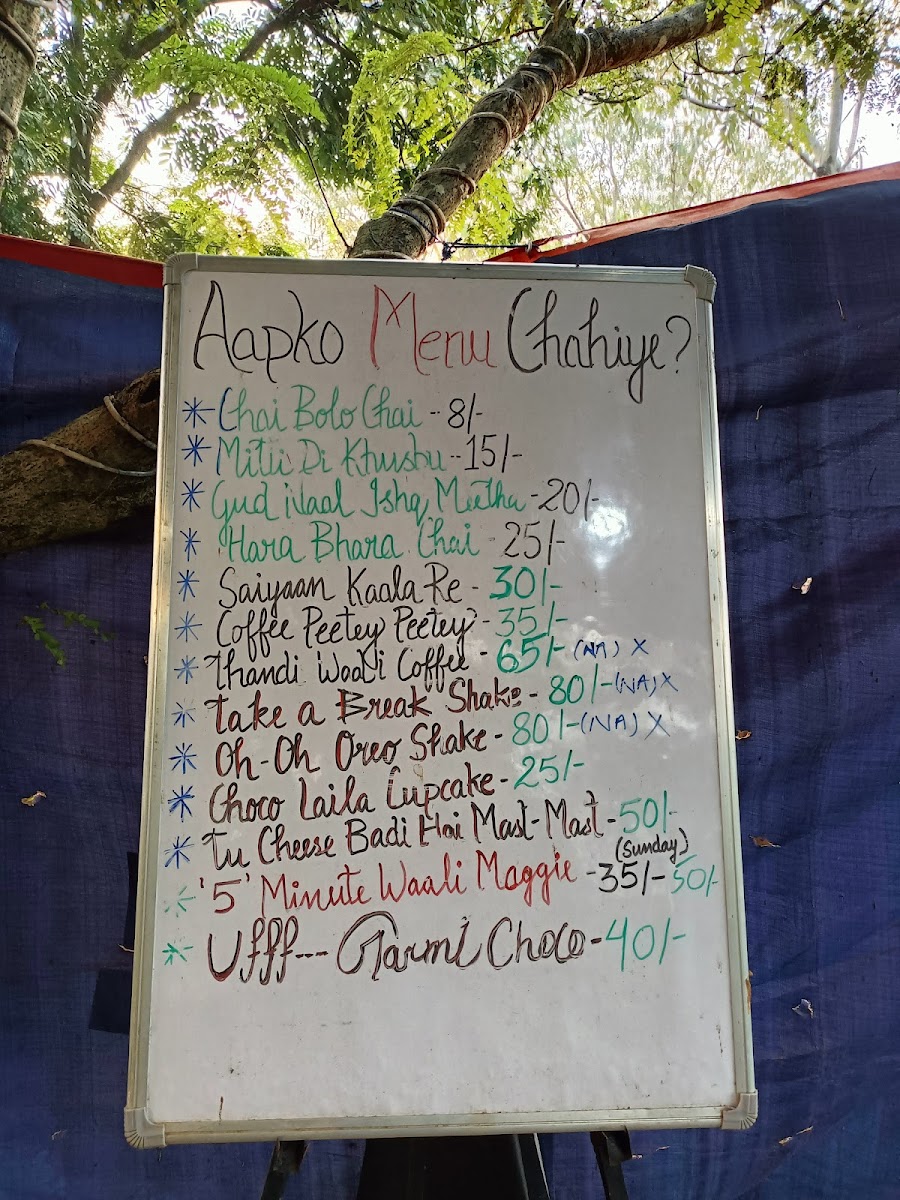 Aapko Menu Chahiye?
* Chai Bolo Chai - 8/-
* Mitii Di Khusbu -- 15/-
* Gud Naal Ishq Meetha - 20/-
* Hara Bhara Chai - 25/-
* Saiyaan Kaala Re - 30/-
* Coffee Peetey Peetey - 35/-
* Thandi Waali Coffee - 65/- (NA) X
* Take a Break Shake - 80/- (NA) X
* Oh-Oh Oreo Shake - 80/- (NA) X
* Choco Laila Cupcake - 25/-
* Tu Cheese Badi Hai Mast-Mast - 50/-
(Sunday)
* '5' Minute Waali Maggie - 35/- 50/-
* Ufff--- Garmi Choco - 40/-